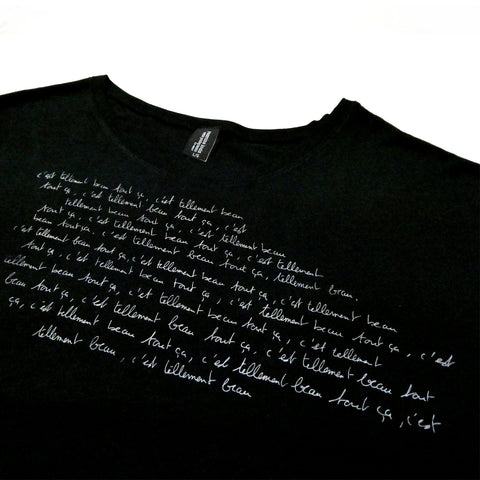 c'est tellement beau tout ça, c'est tellement beau
tout ça, c'est tellement beau tout ça, c'est
tellement beau tout ça, c'est tellement beau
beau tout ça, c'est tellement beau tout ça, c'est tellement
c'est tellement beau tout ça, c'est tellement beau.
tout ça, c'est tellement beau tout ça, c'est tellement beau
tellement beau tout ça, c'est tellement beau tout ça, c'est
beau tout ça, c'est tellement beau tout ça, c'est tellement
ça, c'est tellement beau tout ça, c'est tellement beau tout
tellement beau, c'est tellement beau tout ça, c'est
c'est tellement beau